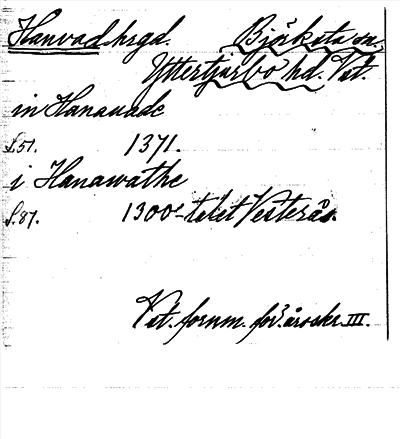 Hanvad hrgd. Björksta sn.
Yttertjurbo hd. Vst.
in Hanauade
s. 51. 1371.
i Hanawathe
s. 87. 1300-talet Vesterås.
Vst. fornm. för. årsskr. III.